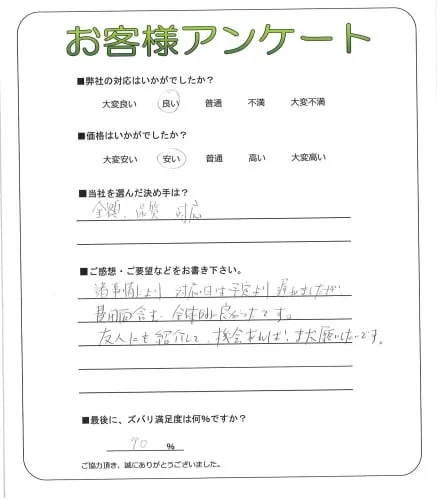 お客様アンケート
■弊社の対応はいかがでしたか?
大変良い 良い 普通 不満 大変不満
■価格はいかがですか?
大変安い 安い 普通 高い 大変高い
■当社を選んだ決め手は?
金額、品質 対応
■ご感想・ご要望などをお書き下さい。
諸事情により 対応日は予定より遅れましたが
費用面含む 全体的に良かったです。
友人にも紹介して、機会あれば、また願いたいです。
■最後に、ズバリ満足度は何%ですか?
90 %
ご協力頂き、誠にありがとうございました。